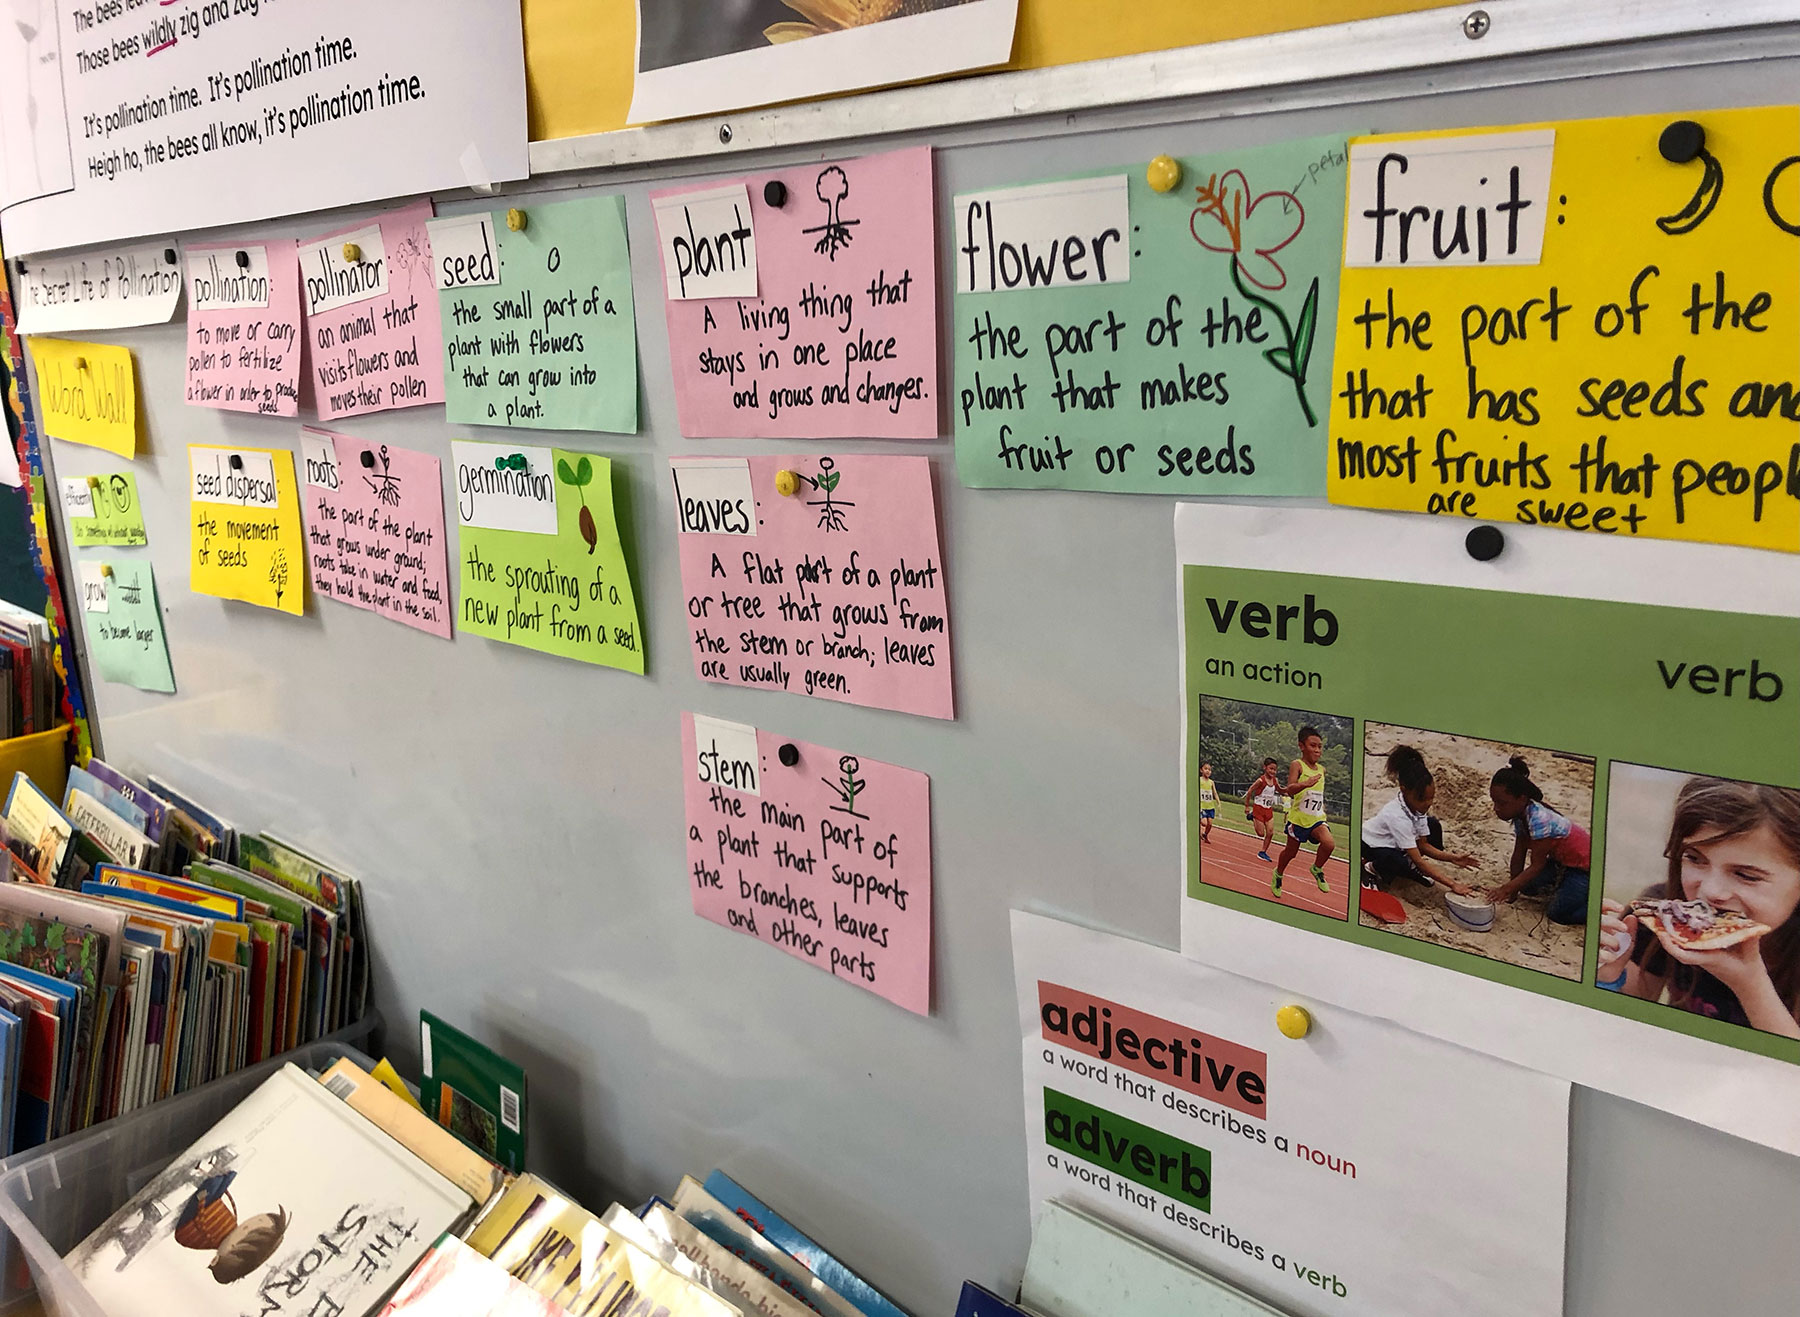 The bees
Those bees wildly zig and zag
It's pollination time. It's pollination time.
Heigh ho, the bees all know, it's pollination time.
The Secret Life of Pollination
Word Wall
efficient
grow
to become larger
pollination:
to move or carry
pollen to fertilize
a flower in order to produce
seeds.
pollinator:
an animal that
visits flowers and
moves their pollen
seed:
the small part of a
plant with flowers
that can grow into
a plant.
seed dispersal:
the movement
of seeds
roots:
the part of the plant
that grows under ground;
roots take in water and food,
they hold the plant in the soil.
germination
the sprouting of a
new plant from a seed.
plant
A living thing that
stays in one place
and grows and changes.
leaves:
A flat part of a plant
or tree that grows from
the stem or branch; leaves
are usually green.
stem:
the main part of
a plant that supports
the branches, leaves
and other parts
flower:
petal
the part of the
plant that makes
fruit or seeds
fruit:
the part of the
that has seeds and
most fruits that peopl
are sweet
verb
an action
verb
158
170
adjective
a word that describes a noun
adverb
a word that describes a verb
CATERPILLAR
THE
STORM